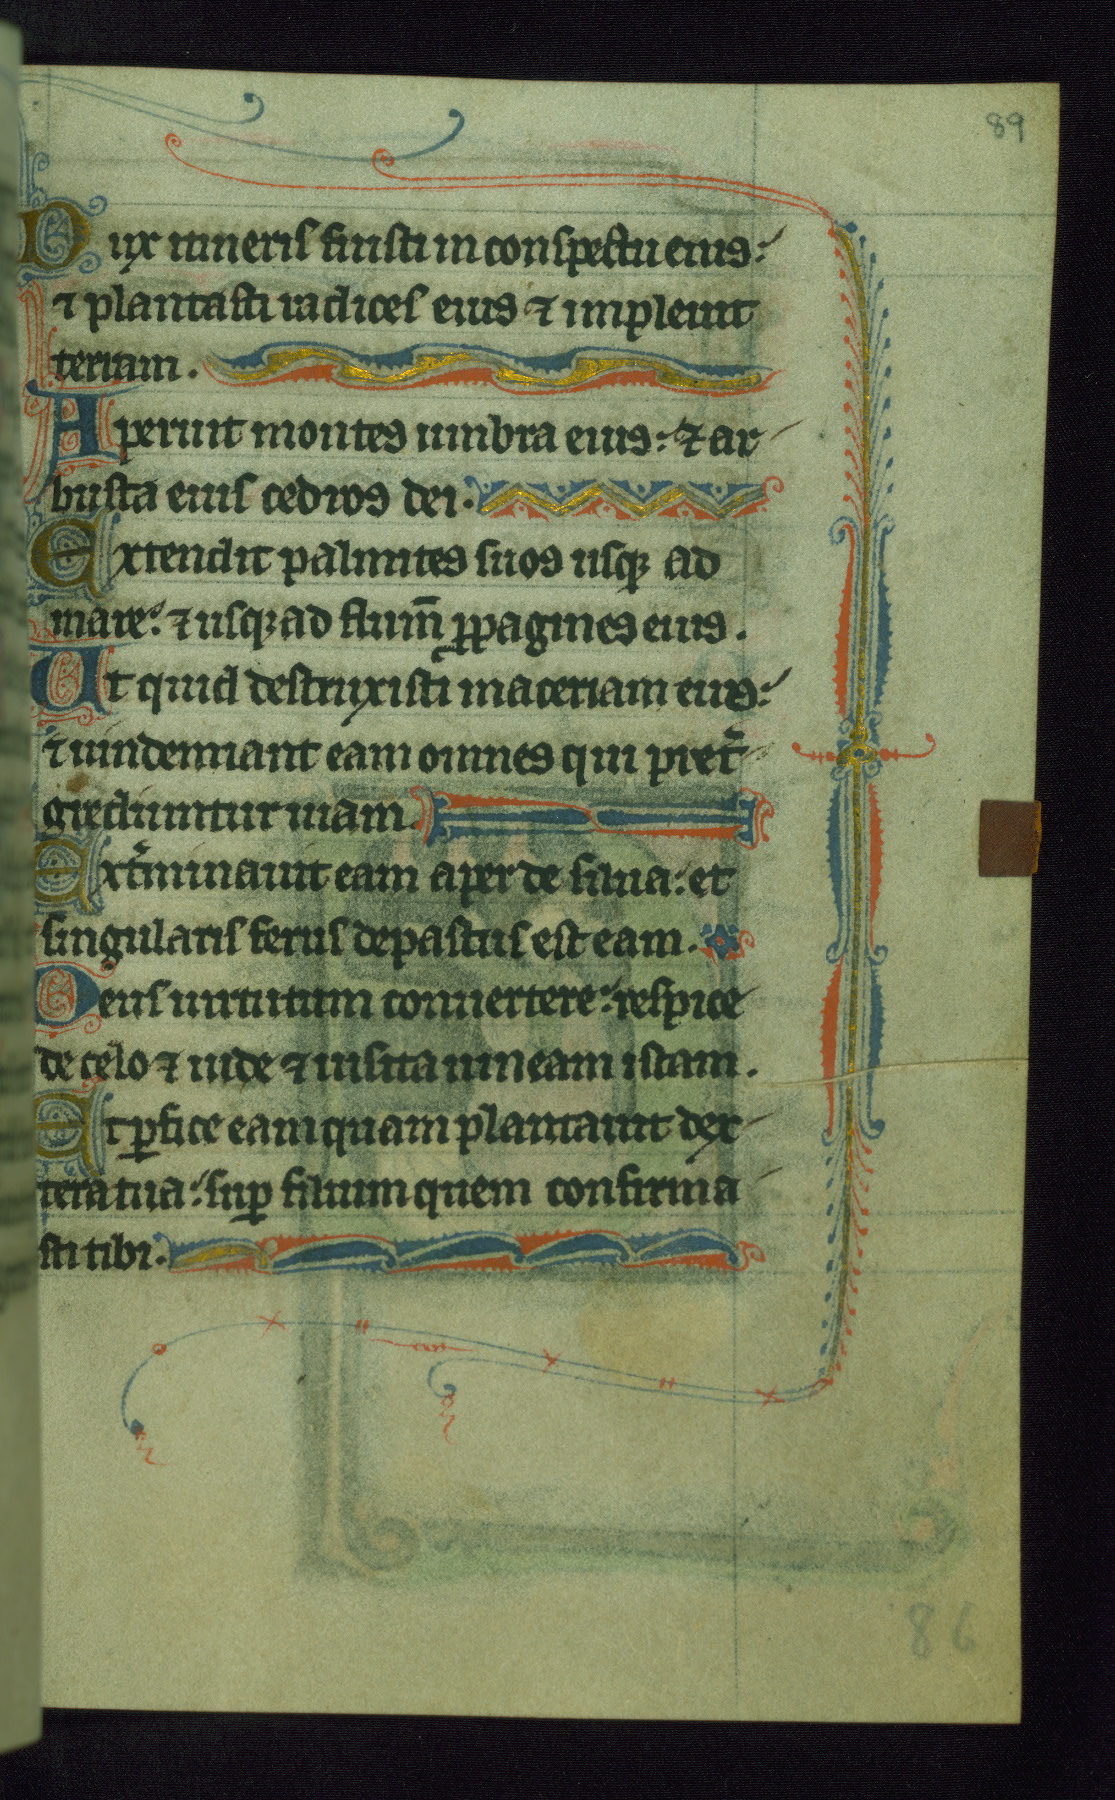 89
Dux itineris fuisti in conspectu eius:
⁊ plantasti radices eius ⁊ impleuit
terram.
Aperuit montes umbra eius: ⁊ ar
busta eius cedros dei.
Extendit palmites suos usqꝫ ad
mare: ⁊ usqꝫ ad flum̄ ꝓpagines eius.
Ut quid destruxisti maceriam eius:
⁊ uindemiant eam omnes qui pret͛
grediuntur uiam.
Ext͛minauit eam aper de silua: et
singularis ferus depastus est eam.
Deus uirtutum conuertere: respice
de celo ⁊ uide ⁊ uisita uineam istam.
Et ꝑfice eam quam plantauit dex
tera tua: suꝑ filium quem confirma
sti tibi.
86